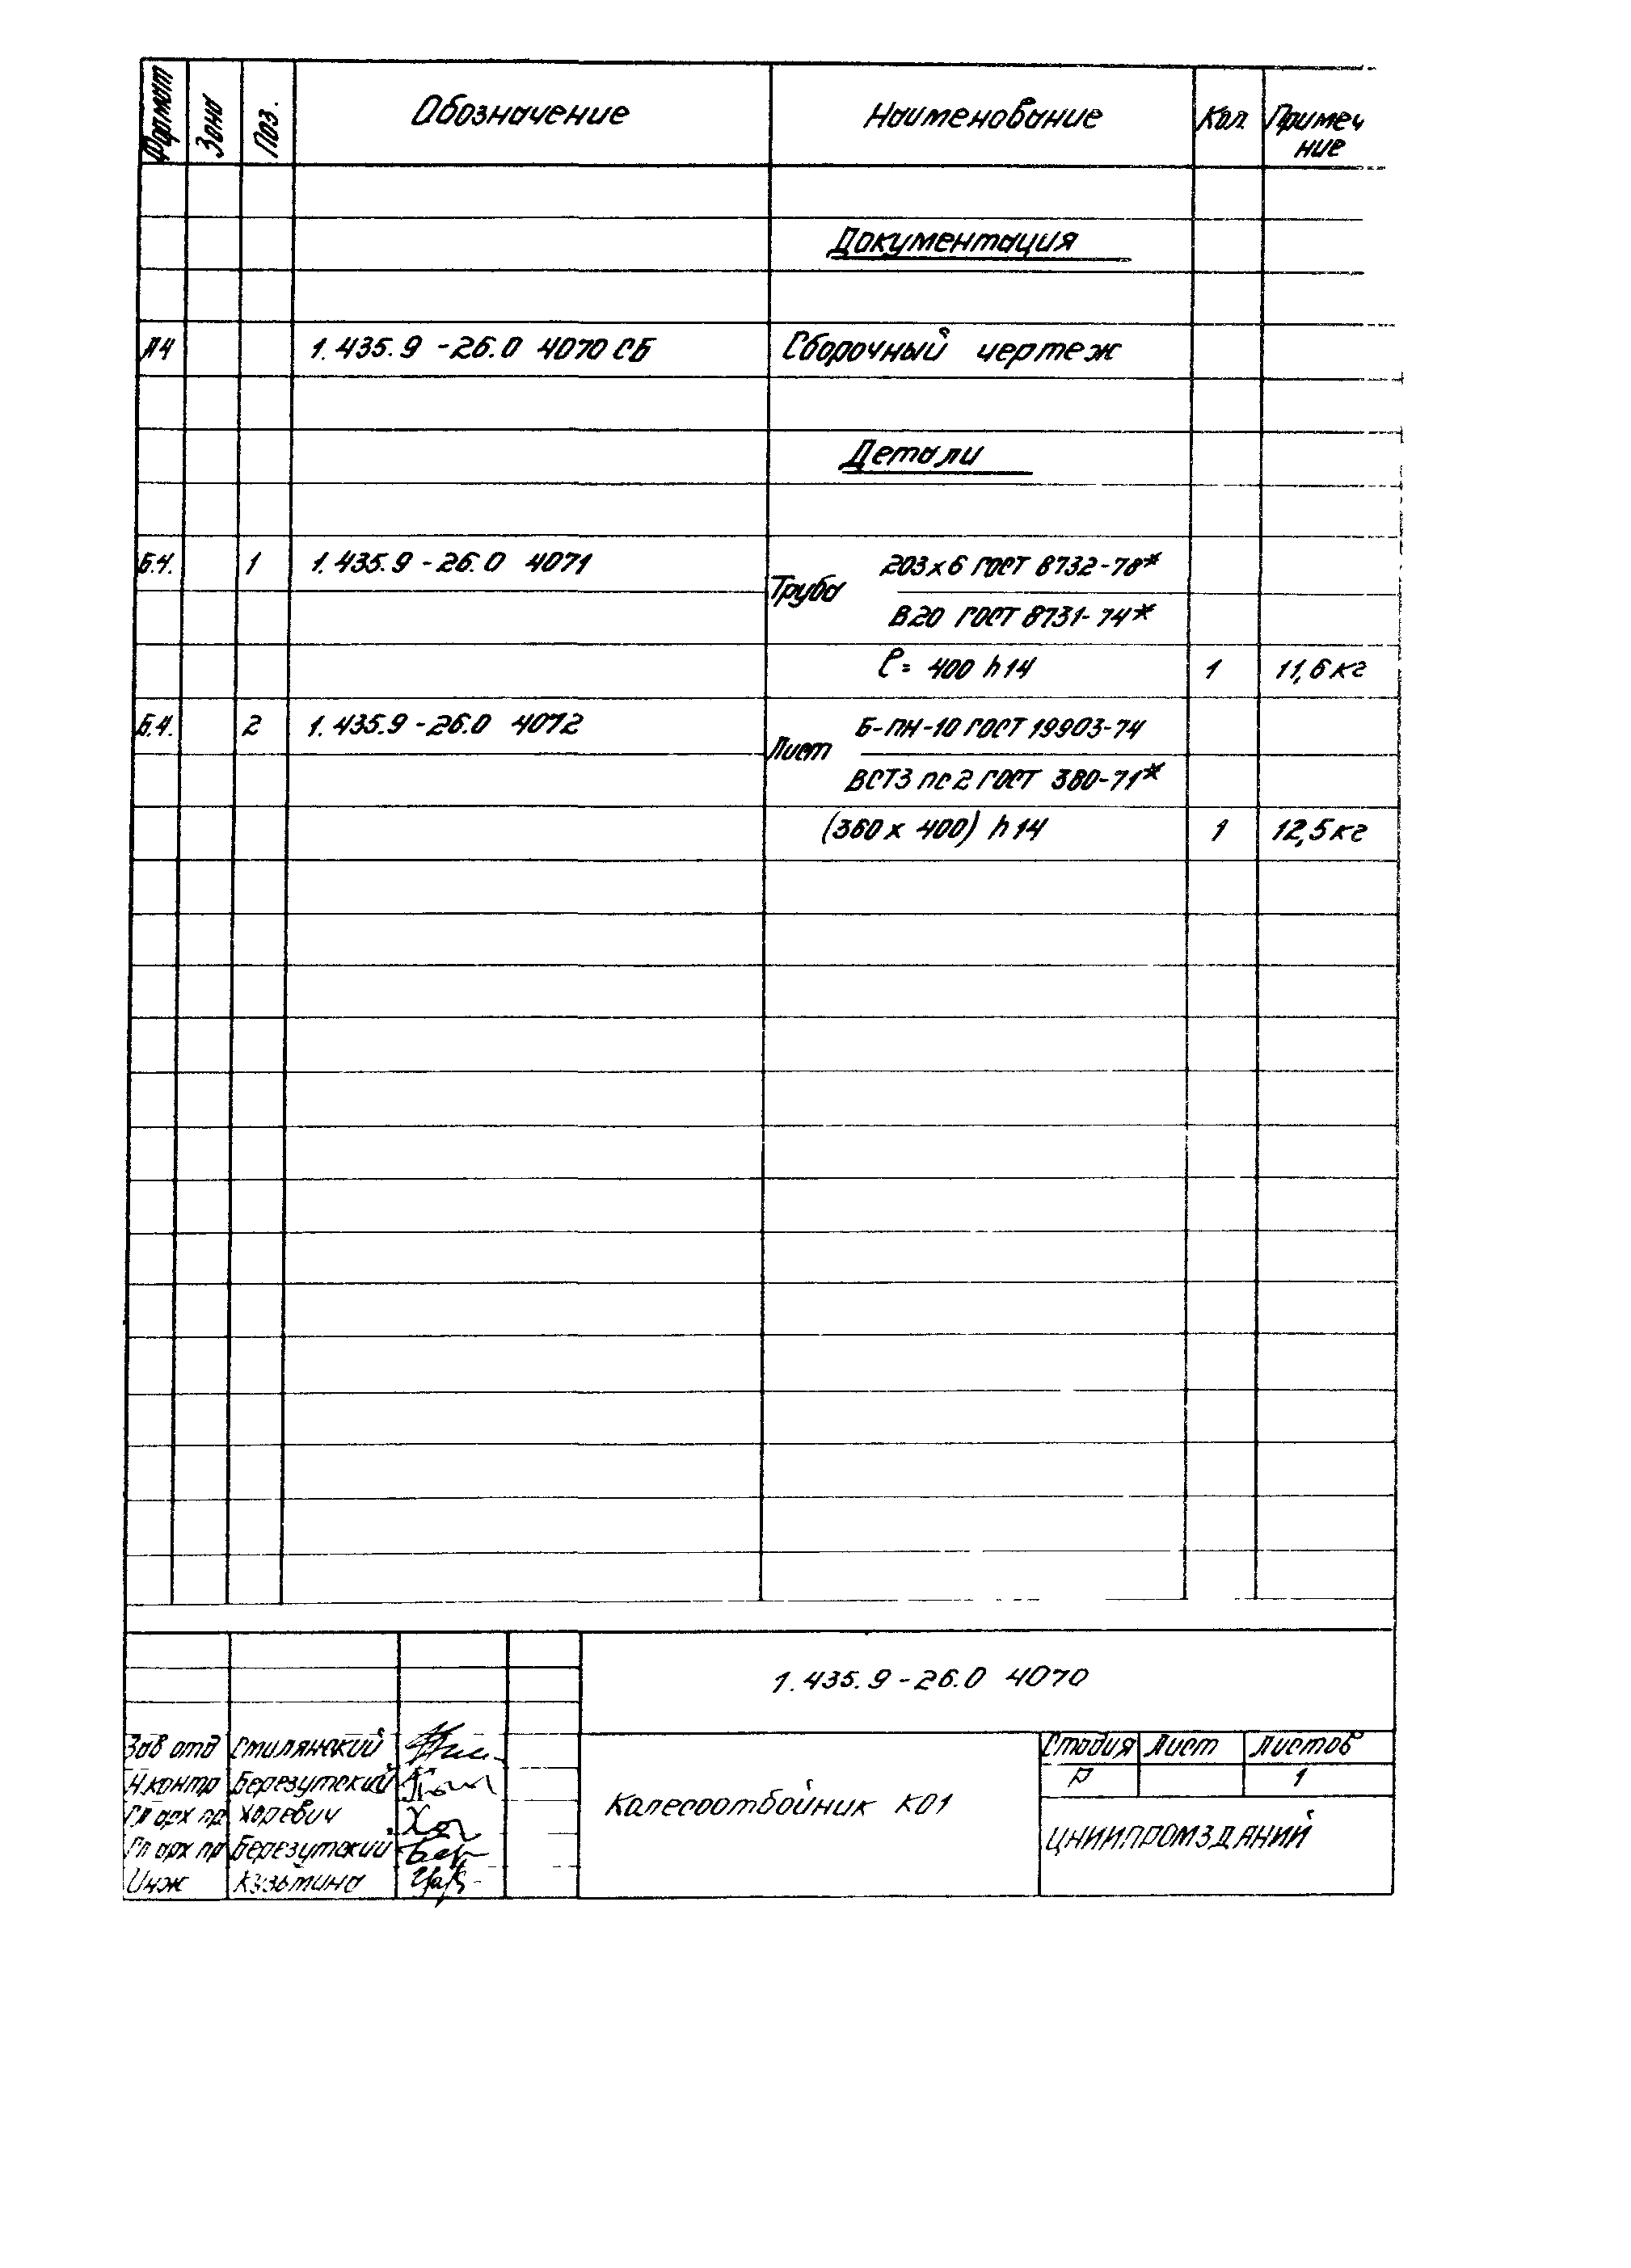 Формат Зона Поз. Обозначение Наименование Кол. Примеч
ние
Документация
А4 1.435.9-26.0 4070 СБ Сборочный чертеж
Детали
Б.Ч. 1 1.435.9-26.0 4071 Труба 203х6 ГОСТ 8732-78*
В20 ГОСТ 8731-74*
ℓ= 400 h14 1 11,6 кг
Б.Ч. 2 1.435.9-26.0 4072 Лист Б-ПН-10 ГОСТ 19903-74
ВСТ3 пс 2 ГОСТ 380-71*
(360 х 400) h14 1 12,5 кг
1.435.9-26.0 4070
Зав отд Смилянский
Н.контр Березутский
Гл арх пр Хоревич
Гл арх пр Березутский
Инж Кузьмина
Колесоотбойник К01
Стадия Лист Листов
Р 1
ЦНИИПРОМЗДАНИЙ